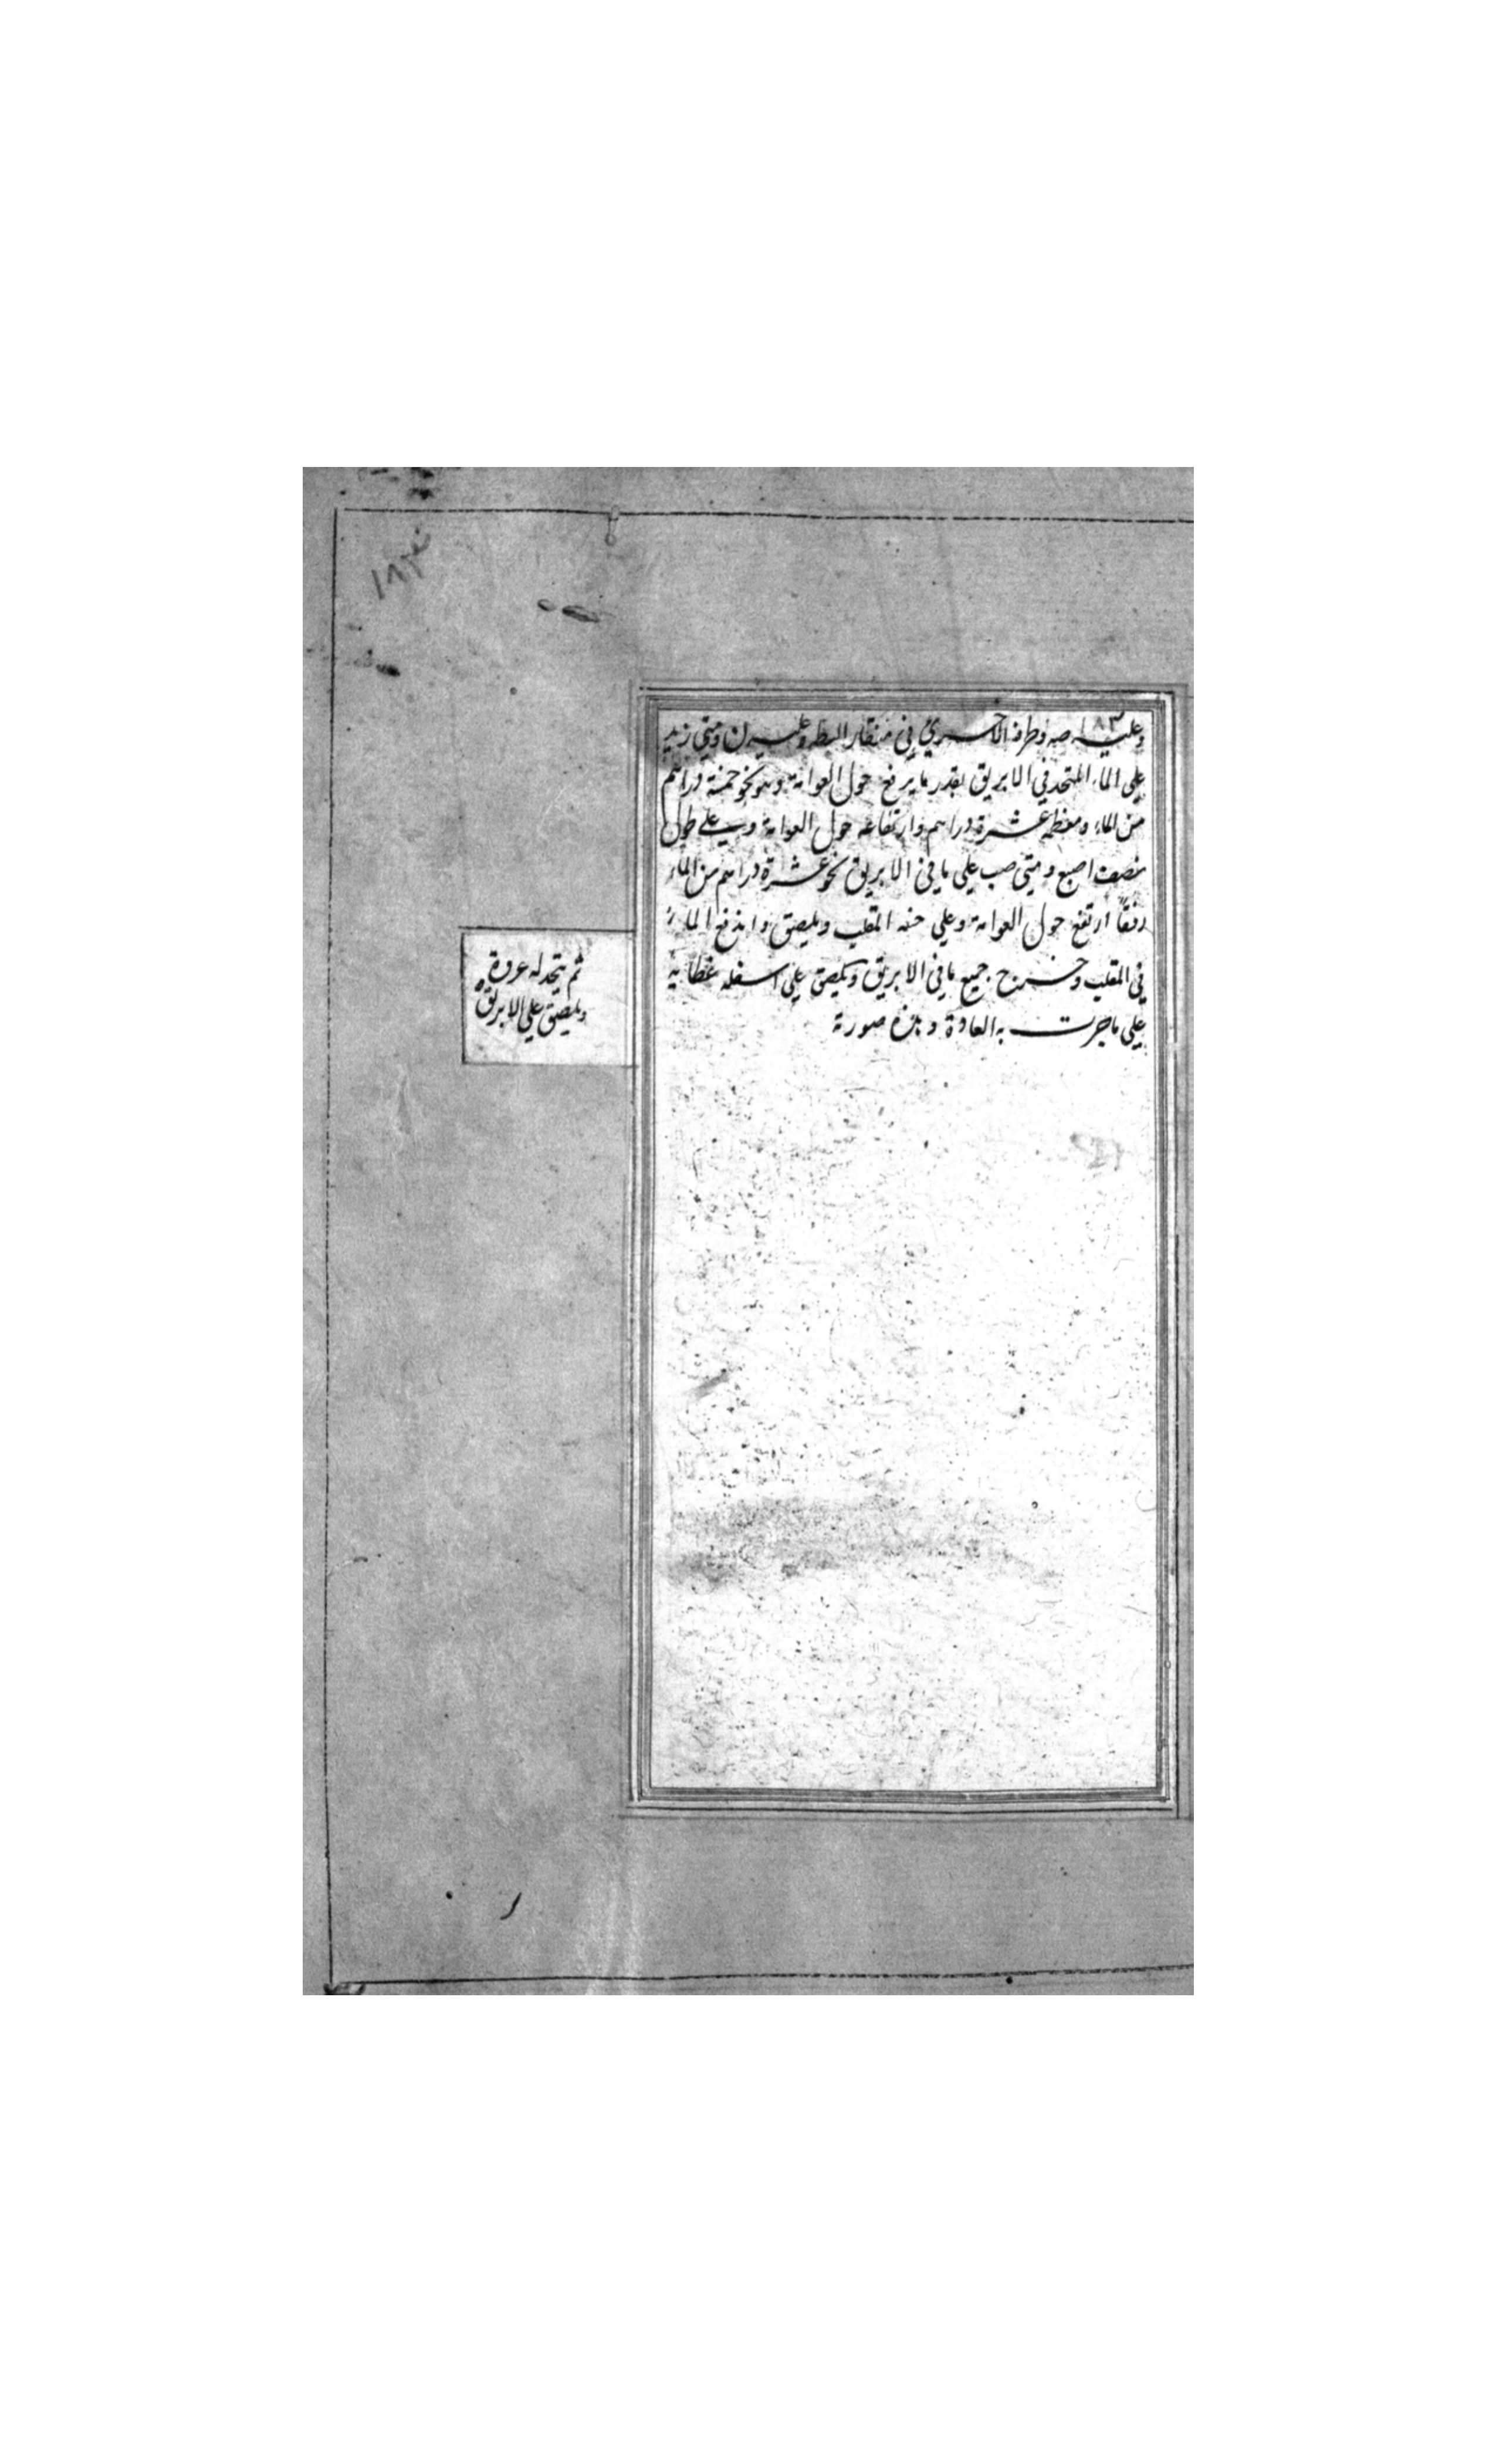 ١٨٣
وعليه صه وطرفه الاخري في منقار البطه وعليه ن ومتي زيد
علي الماء المتحد في الابريق بقدر ما يرفع حول العوامة وهو نحو خمسة دراهم
من الماء ومعظمه عشرة دراهم وارتفاعه حول العوامة وب علي طول
نصف اصبع ومتي صب علي ما في الابريق نحو عشرة دراهم من الماء
دفقا ارتفع حول العوامة وعلي حنه المقلب ويلصق واندفع الماء
في المقلب وخرج جميع ما في الابريق ويلصق علي اسفله غطائه
علي ما جرت به العادة وهذه صورة
ثم يتخذ له عروة
ويلصق علي الابريق